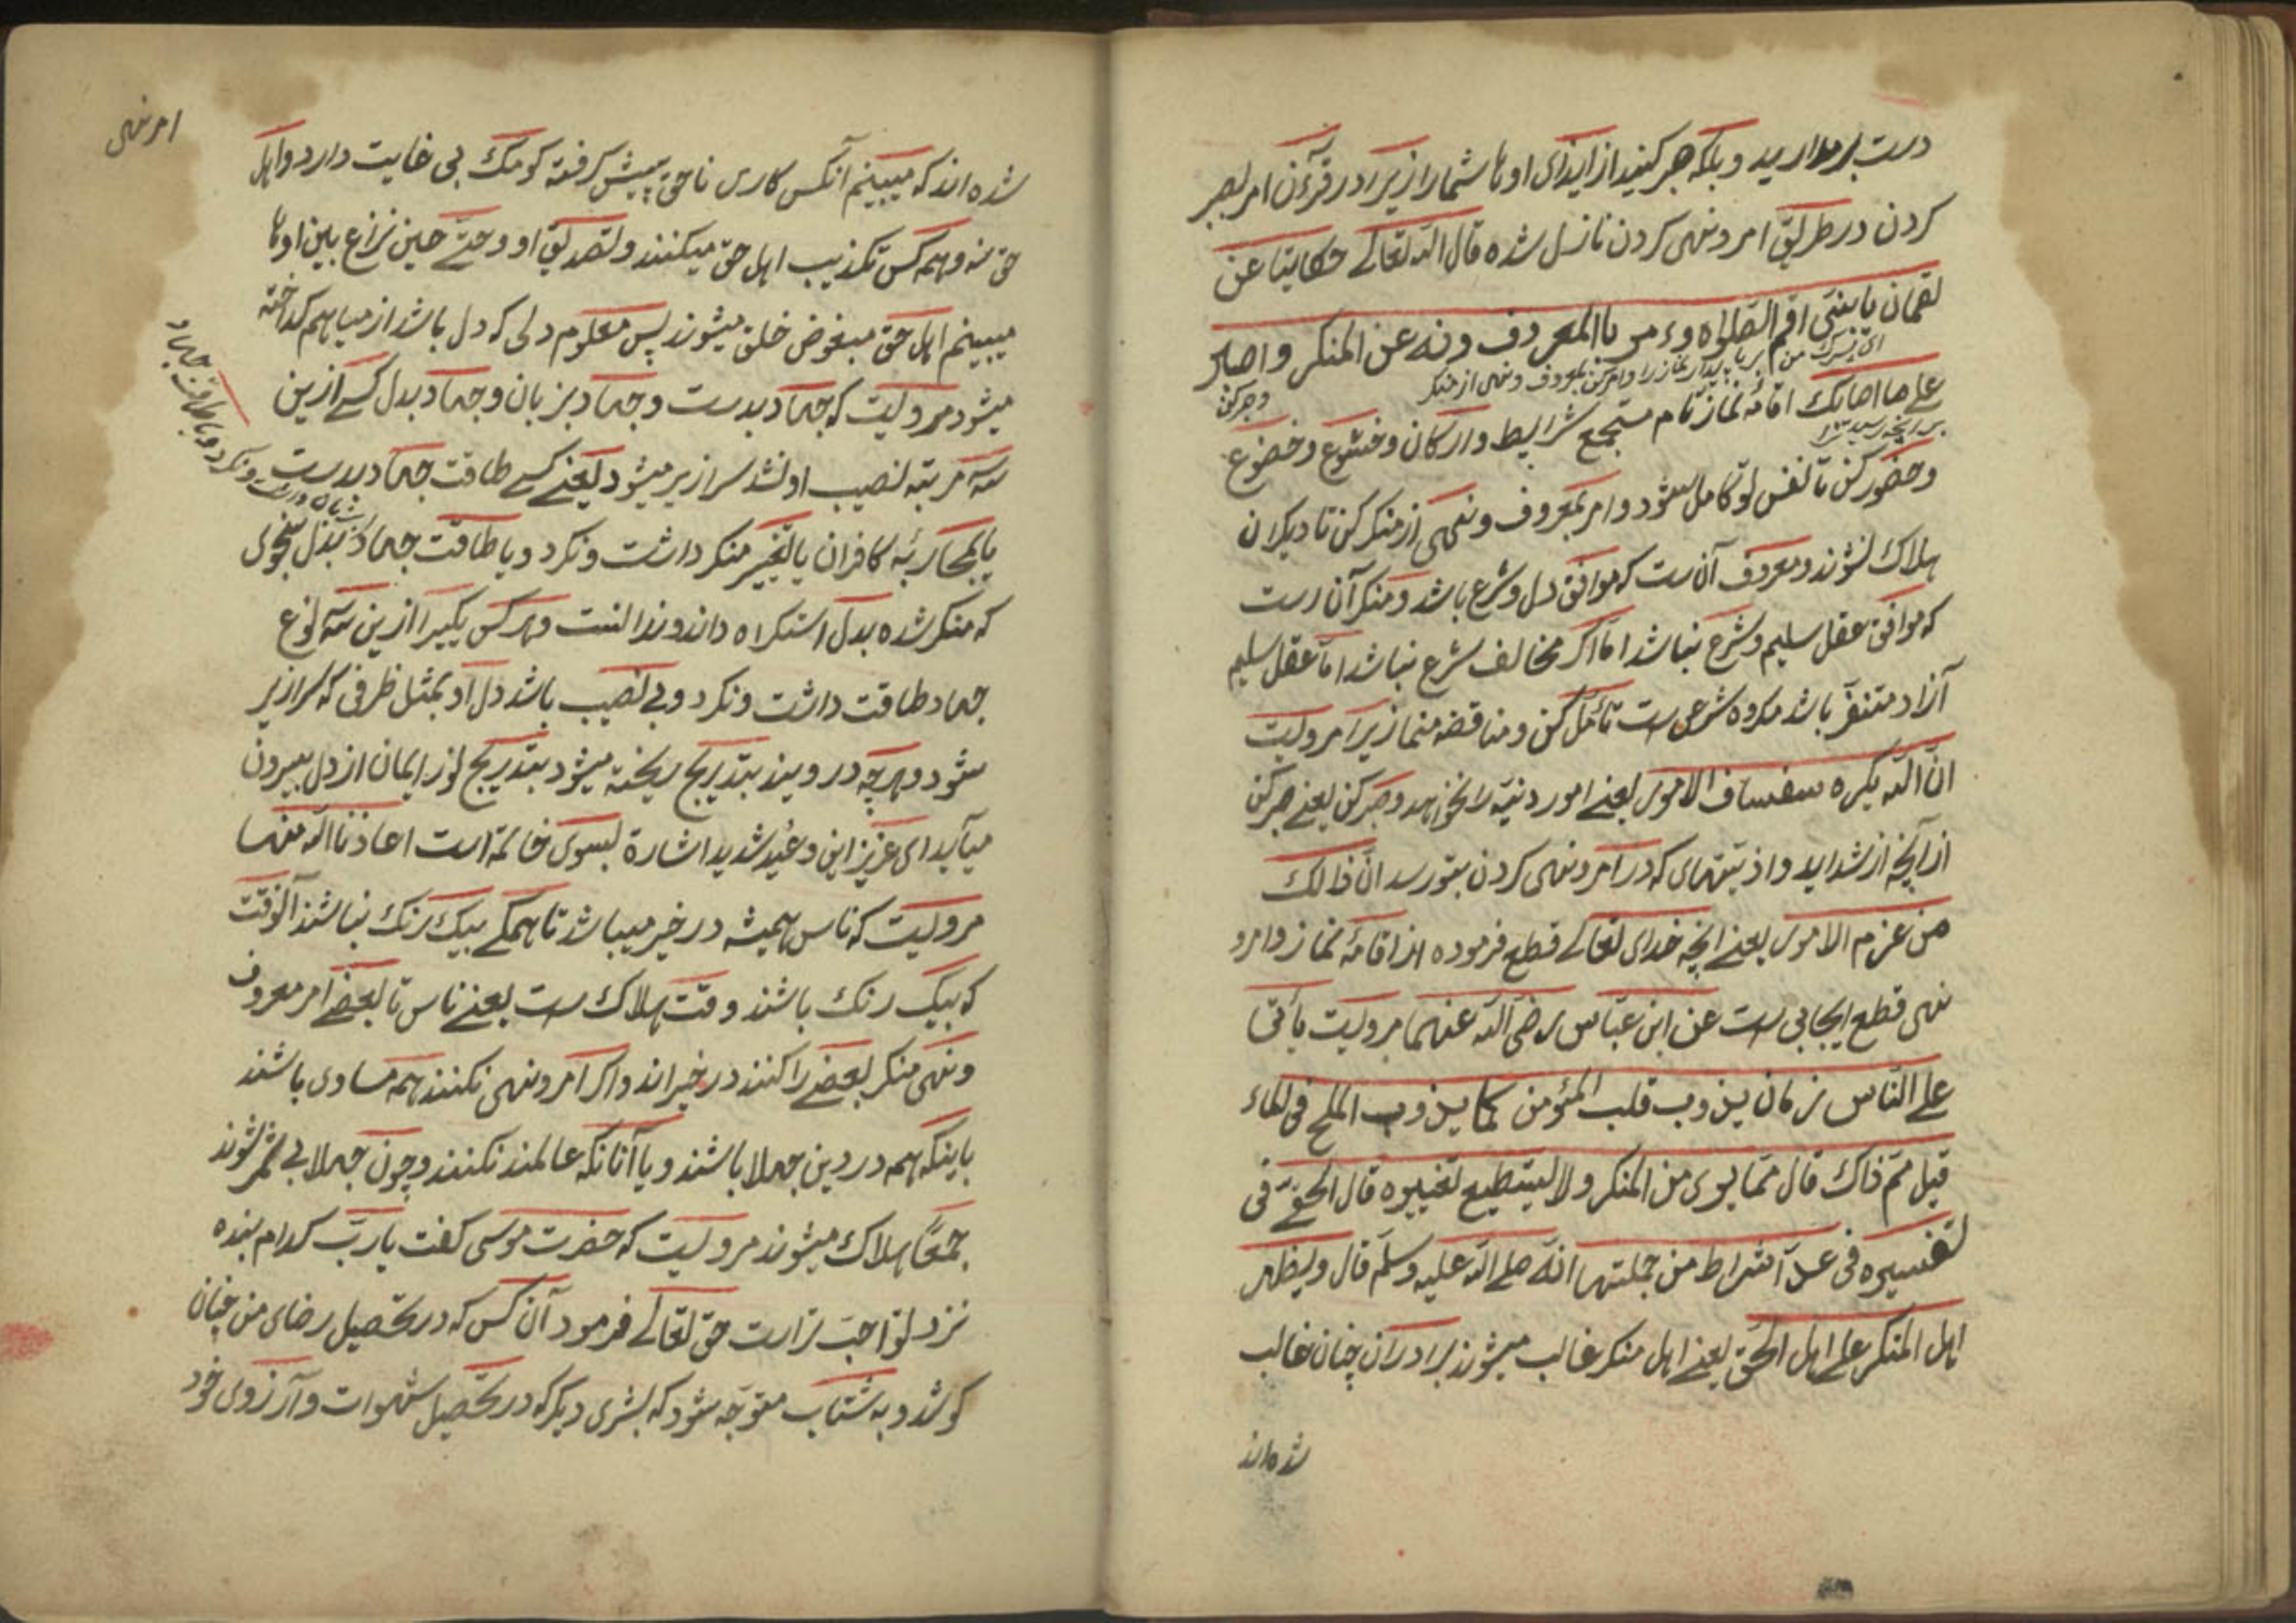 دست برمدارید وبلکه صبر کنید از ایذای اوها شما را زیرا در قرآن امر بصبر
کردن در طریق امر ونهی کردن نازل شده قال الله تعالی حکایتا عن
لقمان یا بنی اقم الصلواه وءمر باالمعروف ونه عن المنکر واصبر
ای پسرک من بر پا بدار نماز را وامر کن بمعروف ونهی از منکر
وصبر کن
علی ما اصابک اقامهٔ نماز تام مستجمع شرایط وارکان وخشوع وخضوع
بر آنچه رسید ترا
وحضور کن تا نفس تو کامل شود وامر بمعروف ونهی از منکر کن تا دیکران
هلاک نشوند ومعروف آن ست که موافق دل وشرع باشد ومنکر آن ست
که موافق عقل سلیم وشرع نباشد اما اکر مخالف شرع نباشد اما عقل سلیم
آزاد متنفر باشد مکروه شرعی ست تأمل کن ومناقضه منما زیرا مرویست
ان الله یکره سفساف الامور یعنی امور دنیه را نخواهد وصبر کن یعنی صبر کن
از آنچه از شداید واذیتهای که در امر ونهی کردن بتو رسد ان ذالک
من عزم الامور یعنی آنچه خدای تعالی قطع فرموده از اقامهٔ نماز وامر و
نهی قطع ایجابی ست عن ابن عباس رضی الله عنهما مرویست یأتی
علی الناس زمان یذوب قلب المئومن کما یذوب الملح فی الماء
قیل مم ذاک قال مما یری من المنکر ولا لیستطیع تغییره قال الحقی فی
تفسیره فی عد اشراط من جملتها انه صلی الله علیه وسلم قال ویظهر
اهل المنکر علی اهل الحق یعنی اهل منکر غالب میشوند برادران چنان غالب
شده اند
امر نهی
شده اند که میبینم آنکس کاری ناحق پیش کرفته کومک بی غایت دارد واهل
حق نه وهمه کس تکذیب اهل حق میکنند وتصدیق او وحتی حین نزاع بین اوها
میبینم اهل حق مبغوض خلق میشوند پس معلوم دلی که دل باشد از میا بهم کداخته
میشود مرویست که جهاد بدست وجهاد بزبان وجهاد بدل کسی ازین
سه مرتبه نصیب او نشد سرازیر میشود یعنی کسی طاقت جهاد بدست
ونکرد ویا طاقت جهاد
یا بمحاربهٔ کافران یا بتغییر منکر داشت ونکرد ویا طاقت جهاد بدل بنحوی
که منکر شده بدل استکراه داند وندانست وهر کس یکیرا ازین سه نوع
جهاد طاقت داشت ونکرد وبی نصیب باشد دل او بمثل ظرفی که سرازیر
شود وهرچه در ویند بتدریج ریخته میشود بتدریج نور ایمان از دل بیرون
میآید ای عزیز این وعید شدید اشارة بسوی خاتمه است اعاذنا الله منها
مرویست که ناس همیشه در خیر میباشد تا همکی بیک رنک نباشند آنوقت
که بیک رنک باشند وقت هلاک ست یعنی ناس تا بعضی امر معروف
ونهی منکر بعضی را کنند در خیر اند واکر امر ونهی نکنند همه مساوی باشند
باینکه همه در دین جهلا باشند ویا آنانکه عالمند نکنند وچون جهلا بی ثمر شوند
جمعا هلاک میشوند مرویست که حضرت موسی کفت یا رب کدام بنده
نزد تو احب تراست حق تعالی فرمود آن کس که در تحصیل رضای من چنان
کوشد وبه شتاب متوجه شود که بشری دیکر که در تحصیل شهوات وآرزوی خود